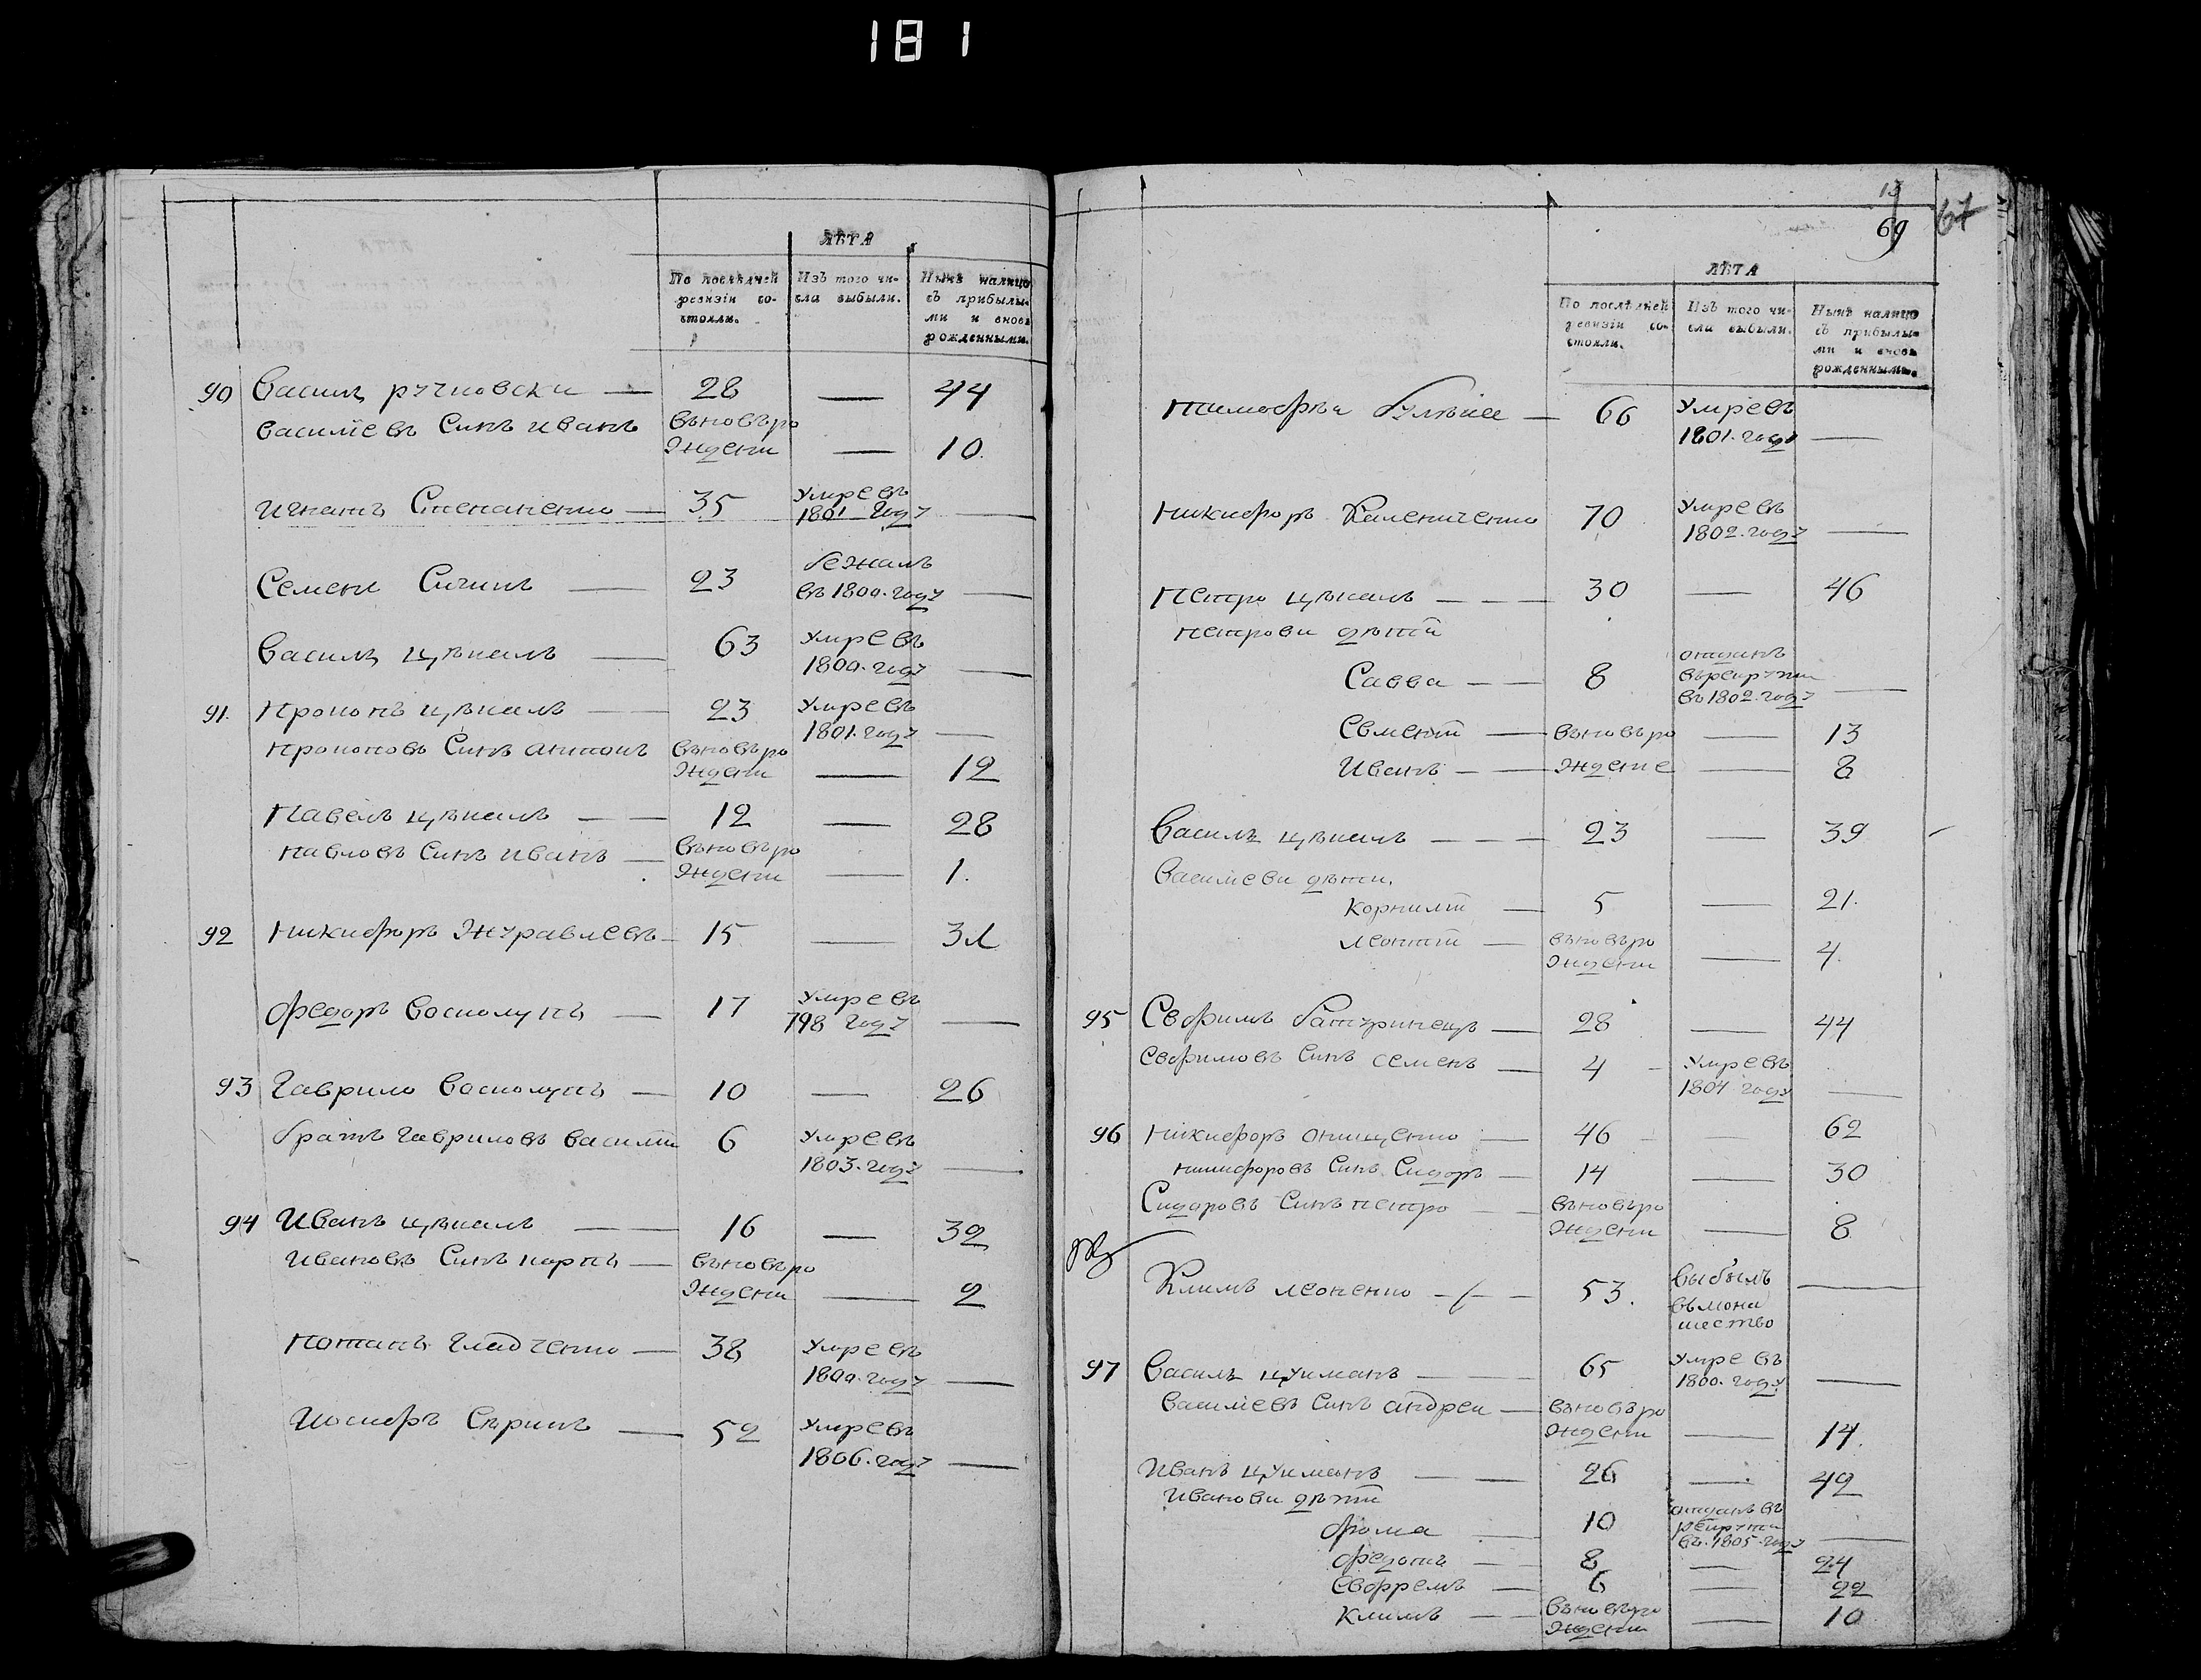 181
ЛѢТА
По послѣдней ревизіи состояли.
Изъ того числа выбыли.
Нынѣ налицо съ прибылыми и вновь рожденными.
90 Василь — 28 — 44
Василіевъ Синъ Иванъ вьновьро
ждени — 10.
Игнатъ Степаненко — 35 Умре въ
1801 году —
Семенъ — 23 бежалъ
въ 1800. году —
Василь Цѣкалъ — 63 Умре въ
1800. году —
91. Прокопъ Цѣкалъ — 23 Умре въ
1801. году —
Прокоповъ Синъ Антонъ вьновьро
ждени — 12
Павелъ Цѣкалъ — 12 — 28
Павловъ Синъ Иванъ — вьновьро
ждени — 1.
92 Никифоръ Журавлевъ — 15 — 31
Федоръ — 17 Умре въ
798 году —
93 Гаврило — 10 — 26
братъ Гавриловъ Василій 6 Умре въ
1803. году —
94 Иванъ Цѣкалъ — 16 — 32
Ивановъ Синъ Карпъ — вьновьро
ждени — 2
Потапъ Гладченко — 38 Умре въ
1800. году —
Иосифъ — 52 Умре въ
1806. году —
13
69 67
ЛѢТА
По послѣдней ревизіи состояли.
Изъ того числа выбыли.
Нынѣ налицо съ прибылыми и вновь рожденными.
Тимофѣй — 66 Умре въ
1801. году —
Никифоръ Калениченко 70 Умре въ
1802. году —
Петро Цѣкалъ — 30 — 46
Петрови дѣти
Савва — 8 отданъ
въ рекрути
въ 1802. году —
Семенъ — вьновьро — 13
Иванъ — ждение — 8
Василь Цѣкалъ — 23 — 39
Василіеви дѣти.
Корнилій — 5 — 21.
Леонтій — вьновьро
ждени — 4.
95 Евфимъ Батуринецъ — 28 — 44
Евфимовъ Синъ Семенъ — 4 — Умре въ
1804 году —
96 Никифоръ Онищенко — 46 — 62
Никифоровъ Синъ Сидоръ — 14 — 30
Сидоровъ Синъ Петро — вьновьро
ждени — 8
Климъ Леоненко — 53. Выбылъ —
въ мона
шество
97 Василь — 65 Умре въ
1800. году —
Василіевъ Синъ Андрей — вьновьро
ждени — 14.
Иванъ — 26 — 42
Иванови дѣти
Фома — 10 отданъ въ
рекрути
въ 1805. году —
Федотъ — 8 — 24
Евфремъ — 6 — 22
Климъ — вьновьро
ждени — 10